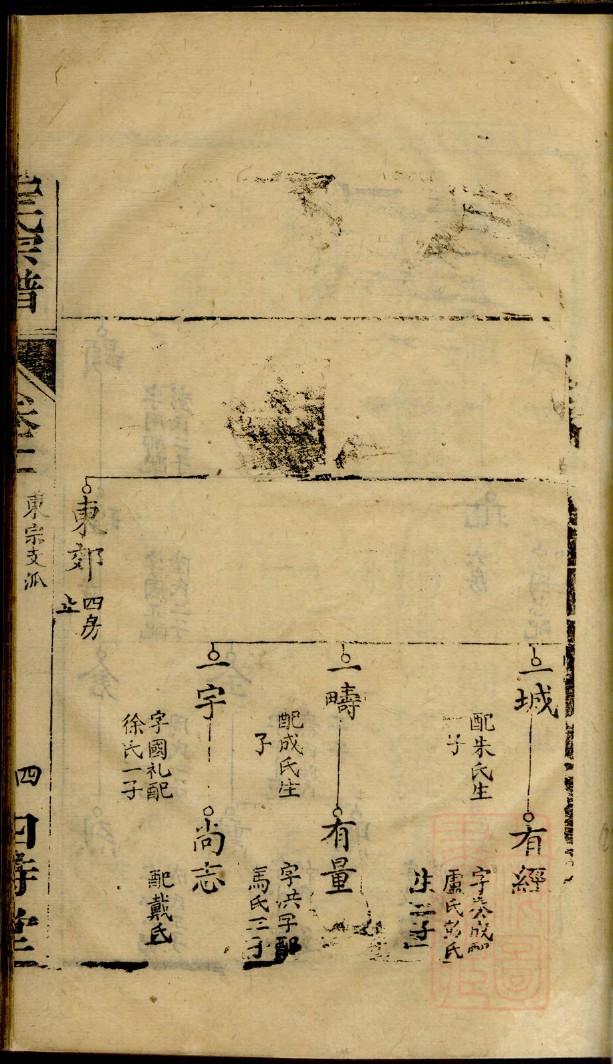 一城
配朱氏生
一子
有經
字奏成配
盧氏彭氏
生二子
一疇
配成氏生
子
有量
字洪孚配
馬氏三子
一字
字國礼配
徐氏一子
尚志
配戴氏
東郊
四房
止
氏宗譜
卷二
東宗支派
四
堂